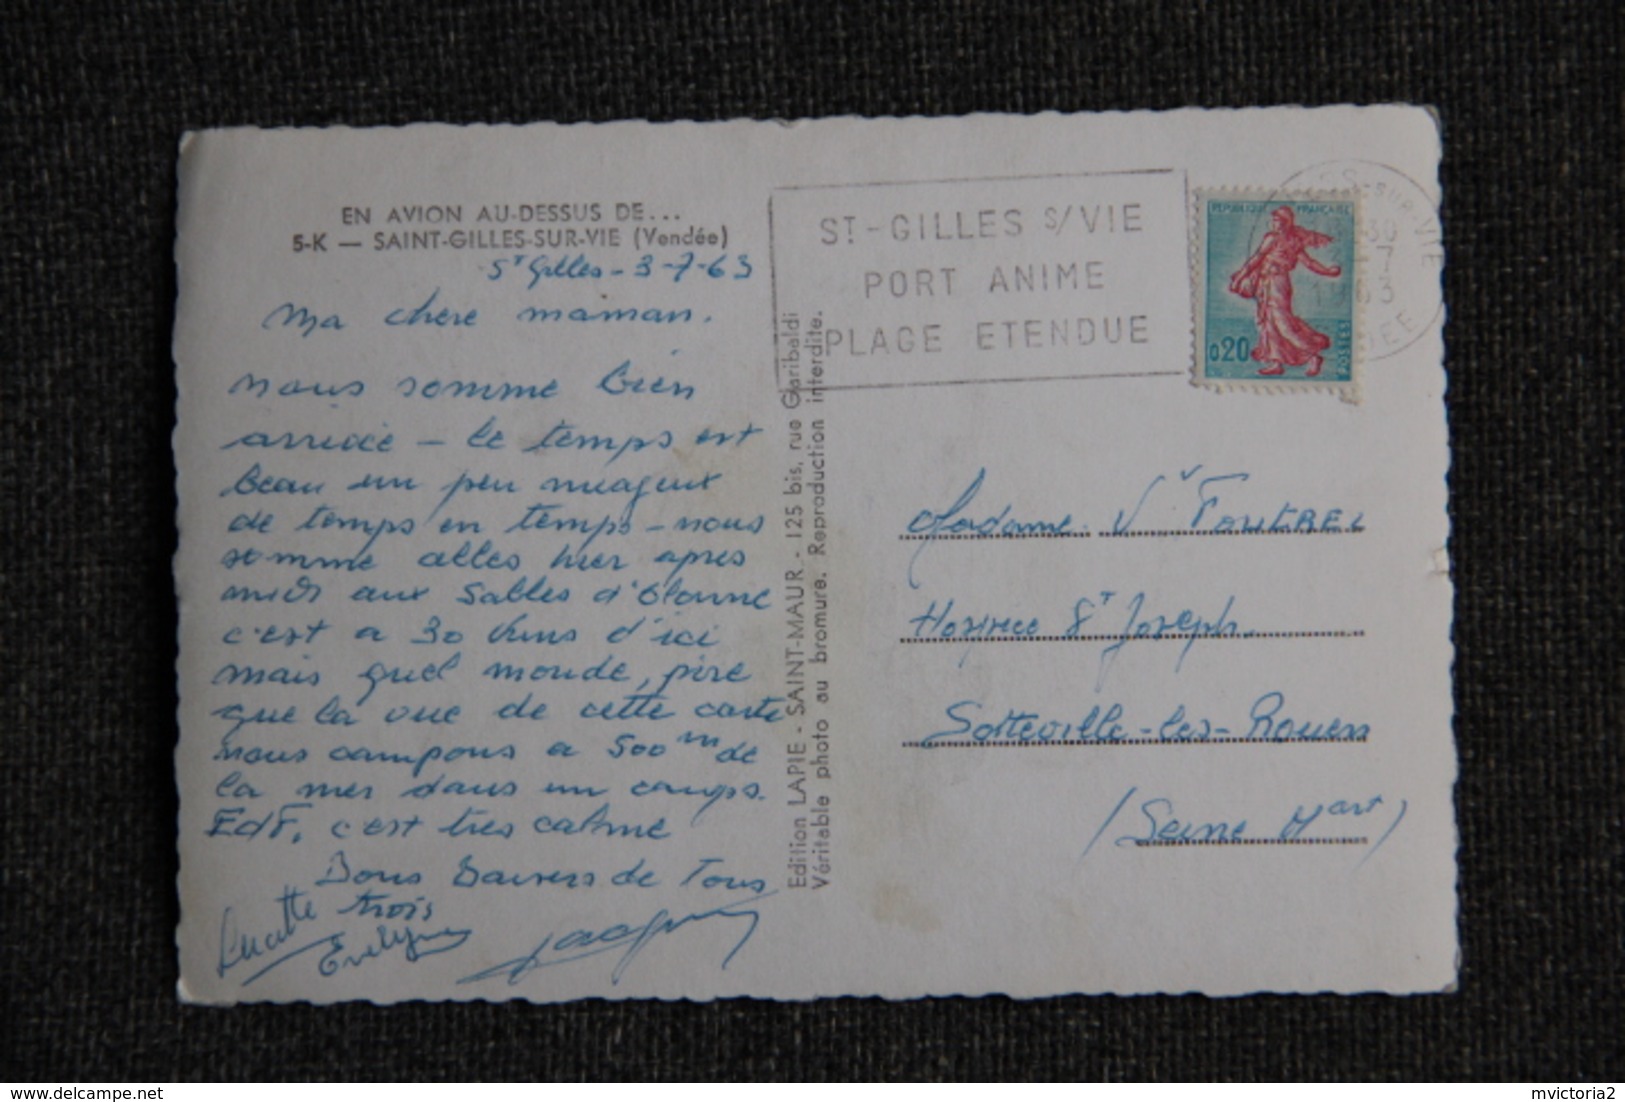 EN AVION AU-DESSUS DE...
5-K — SAINT-GILLES-SUR-VIE (Vendée)
St Gilles - 3-7-63
Ma chere maman.
nous somme bien
arrivée - le temps est
beau un peu nuageux
de temps en temps - nous
somme alles hier apres
midi aux Sables d'Olonne
c'est a 30 kms d'ici
mais quel monde, pire
que la vue de cette carte
nous campons a 500 m de
la mer dans un camps.
EdF, c'est tres calme
Bons Baisers de Tous
trois
Lucette
Evelyne
Jacques
Edition LAPIE - SAINT-MAUR - 125 bis, rue Garibaldi
Véritable photo au bromure. Reproduction interdite.
ST-GILLES S/VIE
PORT ANIME
PLAGE ETENDUE
REPUBLIQUE FRANÇAISE
0,20
POSTES
-SUR-VIE
30
3-7
1963
Madame Vv
Hospice St Joseph
Sotteville-les-Rouen
(Seine Mart)
mvictoria2